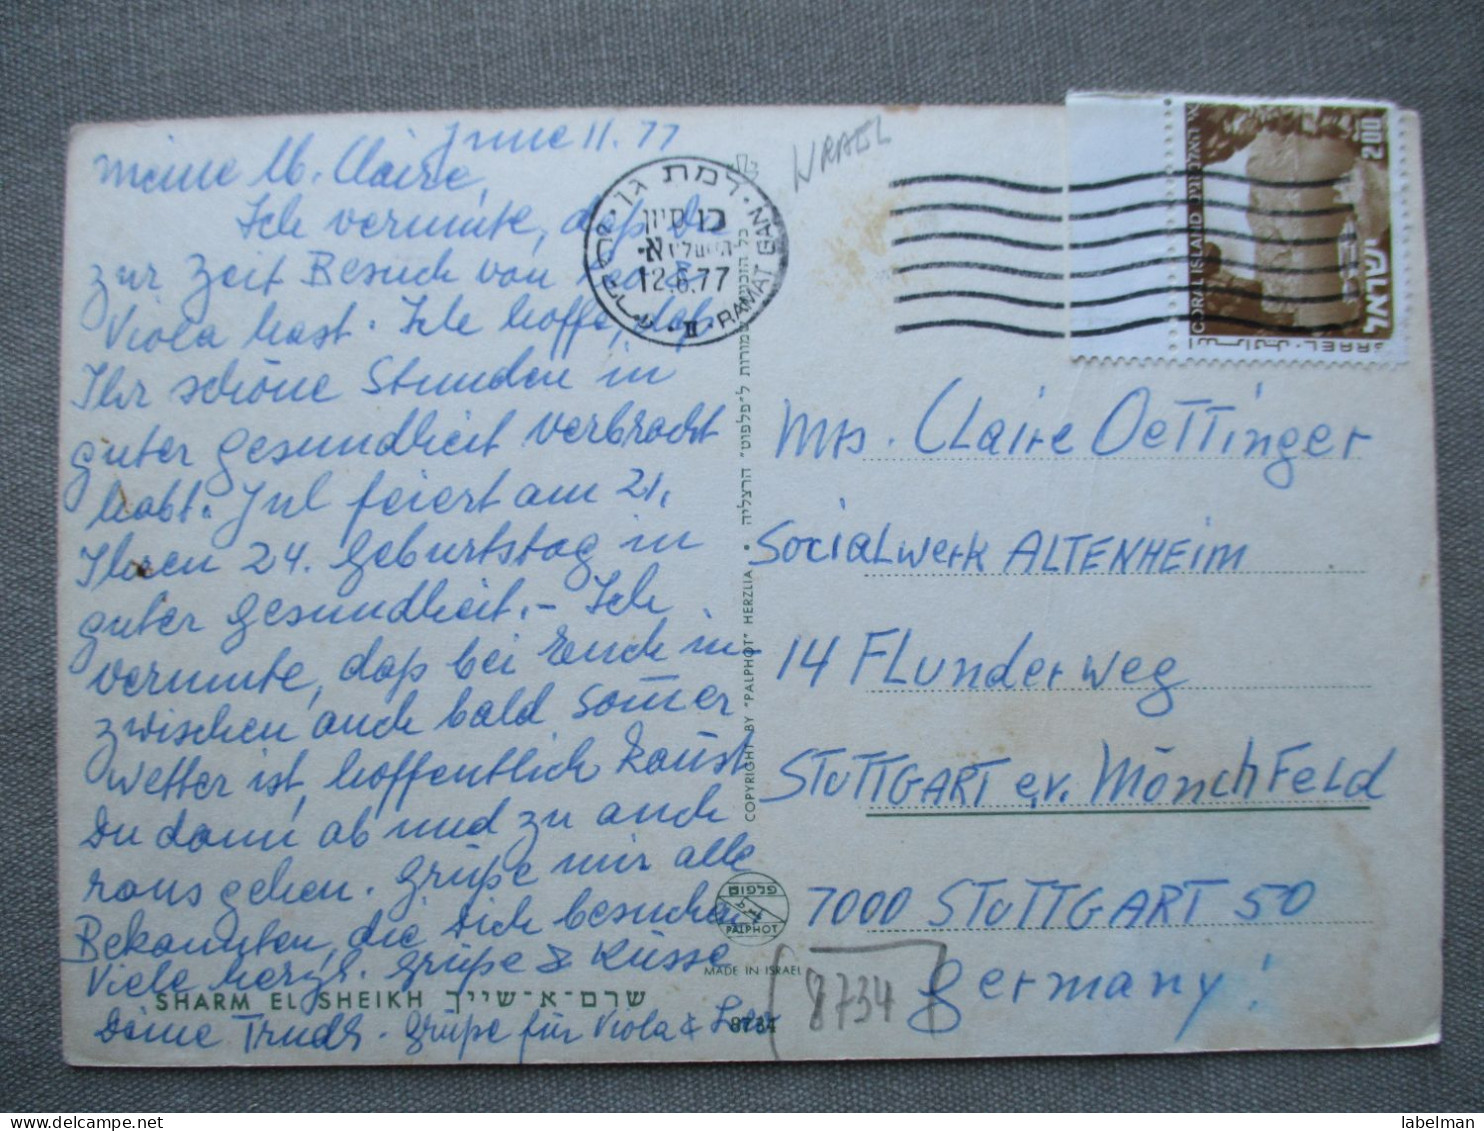 June 11. 77
meine lb. Claire,
Ich vermute, daß Du
zur Zeit Besuch von
Viola hast. Ich hoffe, daß
Ihr schöne Stunden in
guter Gesundheit verbracht
habt. Jul feiert am 21.
Ihren 24. Geburtstag in
guter Gesundheit. - Ich
vermute, daß bei Euch in-
zwischen auch bald Somer
wetter ist, hoffentlich kanst
Du dann ab und zu auch
raus gehen. Grüße mir alle
Bekannten, die Dich besuchen
Viele herzl. Grüße & Küsse
Deine Trude. Grüße für Viola &
SHARM EL SHEIKH שרם-א-שייך
8734
רמת גן · ישראל
כו סיון
12.6.77
II · RAMAT GAN
ISRAEL
2.00
CORAL ISLAND
ISRAEL
COPYRIGHT BY "PALPHOT" HERZLIA • כל הזכויות שמורות ל"פלפוט" הרצליה
פלפוט
PALPHOT
MADE IN ISRAEL
Mrs. Claire Oettinger
Socialwerk ALTENHEIM
14 Flunderweg
STUTTGART e.v. MönchFeld
7000 STUTTGART 50
Germany!
8734
labelman
www.delcampe.net